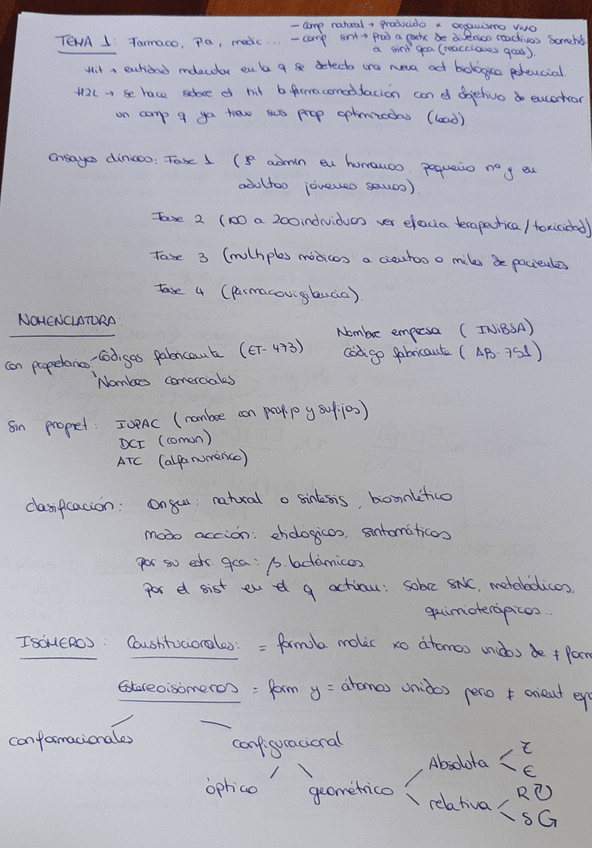 - comp natural → producido x organismo vivo
TEMA 1: Farmaco, Pa, medic... - comp sint → prod a partir de diversos reactivos sometid
a sint qca (reacciones qcas).
Hit → entidad molecular en la q se detecta una nueva act biológica potencial.
H2L → se hace sobre el hit la farmacomodulación con el objetivo de encontrar
un comp q ya tiene sus prop optimizadas (Lead)
Ensayos clínicos: Fase 1 (1ª admin en humanos, pequeño nº y en
adultos jóvenes sanos).
Fase 2 (100 a 200 individuos ver eficacia terapeutica / toxicidad)
Fase 3 (multiples médicos a cientos o miles de pacientes
Fase 4 (farmacovigilancia).
NOMENCLATURA.
Nombre empresa (INIBSA)
Con propietario: - Códigos fabricante (ET-473) código fabricante (AB-751)
Nombres comerciales
Sin propiet: IUPAC (nombre con prefijo y sufijos)
DCI (comun)
ATC (alfanumérico)
Clasificación: Origen: natural o sintesis, biosintético
modo acción: etiológicos, sintomáticos
por su estr. qca: β-lactámicos
Por el sist en el q actúan: sobre SNC, metabólicos,
quimioterápicos...
ISÓMEROS: Constitucionales: = formula molec xo átomos unidos de ≠ form
Estereoisómeros = form y = átomos unidos pero ≠ orient esp
conformacionales configuracional
óptico geométrico Absoluta Z
E
relativa R ↻
S G